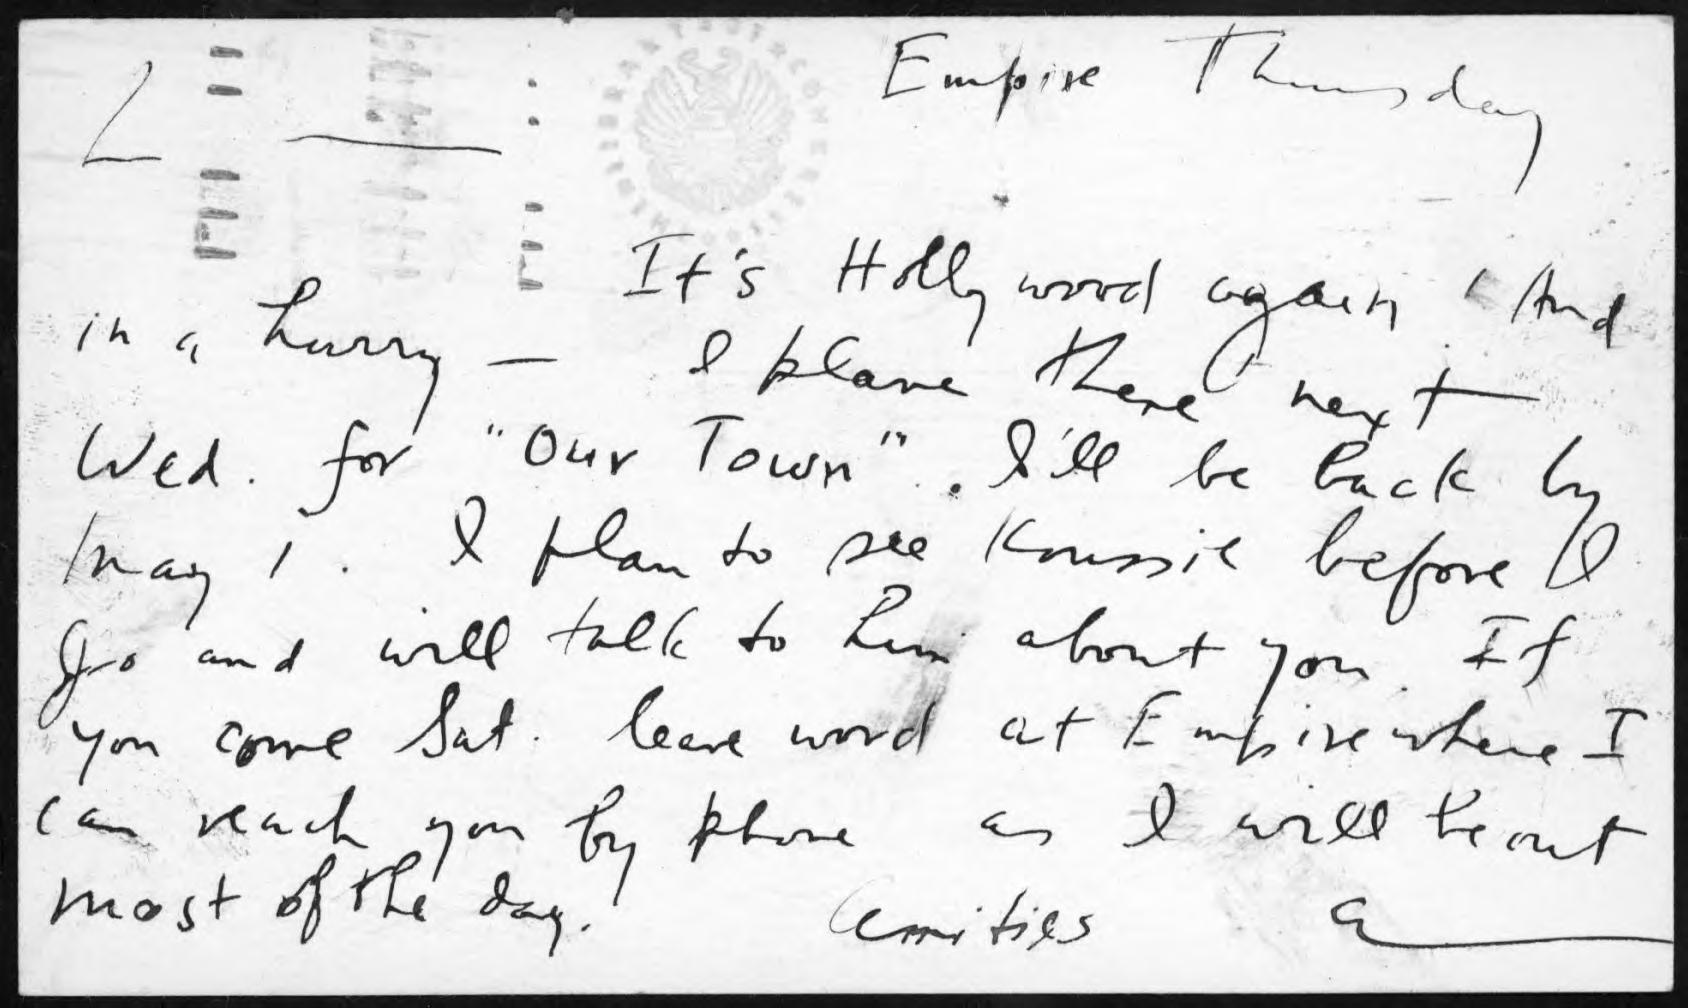 Empire Thursday
L——
It's Hollywood again! And
in a hurry — I plane there next
Wed. for "Our Town". I'll be back by
May 1. I plan to see Koussie before I
go and will talk to him about you. If
you come Sat. leave word at Empire where I
can reach you by phone as I will be out
most of the day. Amities A——